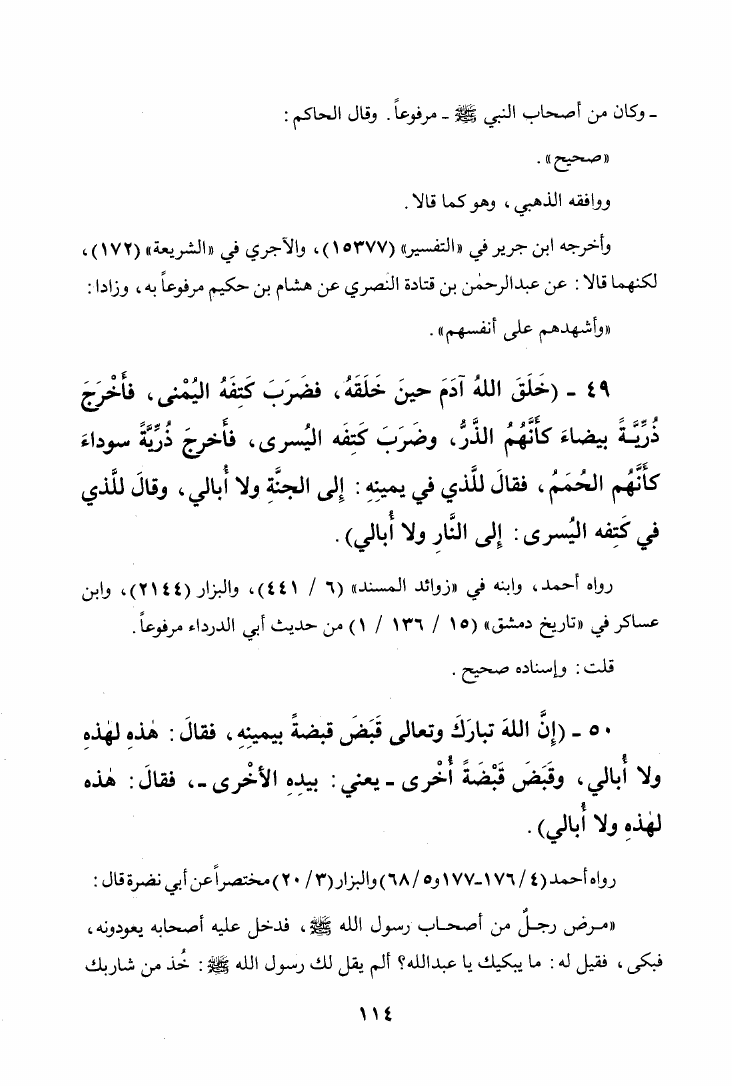 ـ وكان من أصحاب النبي ﷺ ـ مرفوعاً. وقال الحاكم:
«صحيح».
ووافقه الذهبي، وهو كما قالا.
وأخرجه ابن جرير في «التفسير» (١٥٣٧٧)، والآجري في «الشريعة» (١٧٢)،
لكنهما قالا: عن عبدالرحمٰن بن قتادة النصري عن هشام بن حكيم مرفوعاً به، وزادا:
«وأشهدهم على أنفسهم».
٤٩ - (خَلَقَ اللهُ آدَمَ حينَ خَلَقَهُ، فضَرَبَ كَتِفَهُ اليُمْنى، فأَخْرَجَ
ذُرِّيَّةً بيضاءَ كأَنَّهُمُ الذَّرُّ، وضَرَبَ كَتِفه اليُسرى، فأَخرجَ ذُرِّيَّةً سوداءَ
كأَنَّهُم الحُمَمُ، فقالَ للَّذي في يمينِه: إلى الجنَّةِ ولا أُبالي، وقالَ للَّذي
في كَتِفه اليُسرى: إلى النَّارِ ولا أُبالي).
رواه أحمد، وابنه في «زوائد المسند» (٦ / ٤٤١)، والبزار (٢١٤٤)، وابن
عساكر في «تاريخ دمشق» (١٥ / ١٣٦ / ١) من حديث أبي الدرداء مرفوعاً.
قلت: وإسناده صحيح.
٥٠ - (إنَّ اللهَ تبارَكَ وتعالى قَبَضَ قبضةً بيمينِهِ، فقالَ: هٰذه لهٰذهِ
ولا أُبالي، وقَبَضَ قَبْضَةً أُخْرى ـ يعني: بيدِهِ الأخْرى ـ، فقالَ: هٰذه
لهٰذهِ ولا أُبالي).
رواه أحمد (٤/ ١٧٦-١٧٧ و٥/ ٦٨) والبزار (٣/ ٢٠) مختصراً عن أبي نضرة قال:
«مرض رجلٌ من أصحاب رسول الله ﷺ، فدخل عليه أصحابه يعودونه،
فبكى، فقيل له: ما يبكيك يا عبدالله؟ ألم يقل لك رسول الله ﷺ: خُذ من شاربك
١١٤